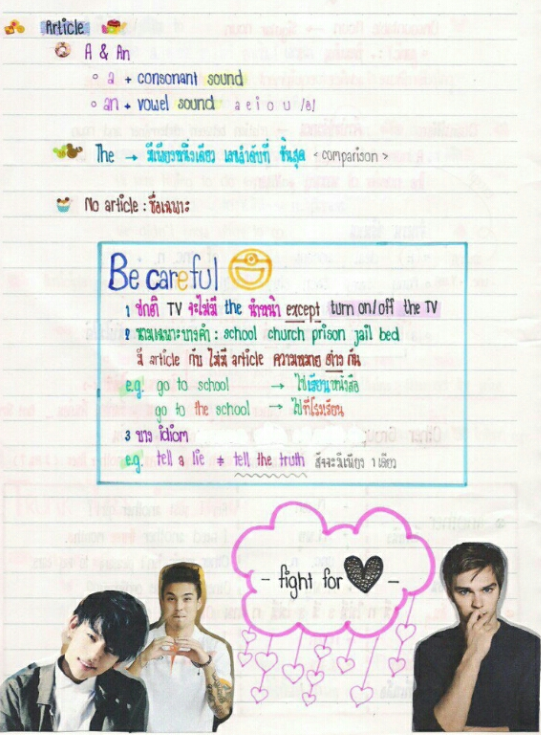 Article
A & An
a + consonant sound
an + vowel sound a e i o u /ə/
The → มีเพียงหนึ่งเดียว เลขลำดับที่ ขั้นสุด <comparison>
No article : ชื่อเฉพาะ
Be careful
1 ปกติ TV จะไม่มี the นำหน้า except turn on/off the TV
2 นามเฉพาะบางคำ : school church prison jail bed
มี article กับ ไม่มี article ความหมาย ต่าง กัน
e.g. go to school → ไปเรียนหนังสือ
go to the school → ไปที่โรงเรียน
3 บาง idiom
e.g. tell a lie ≠ tell the truth มีเพียง 1 เดียว
- fight for -